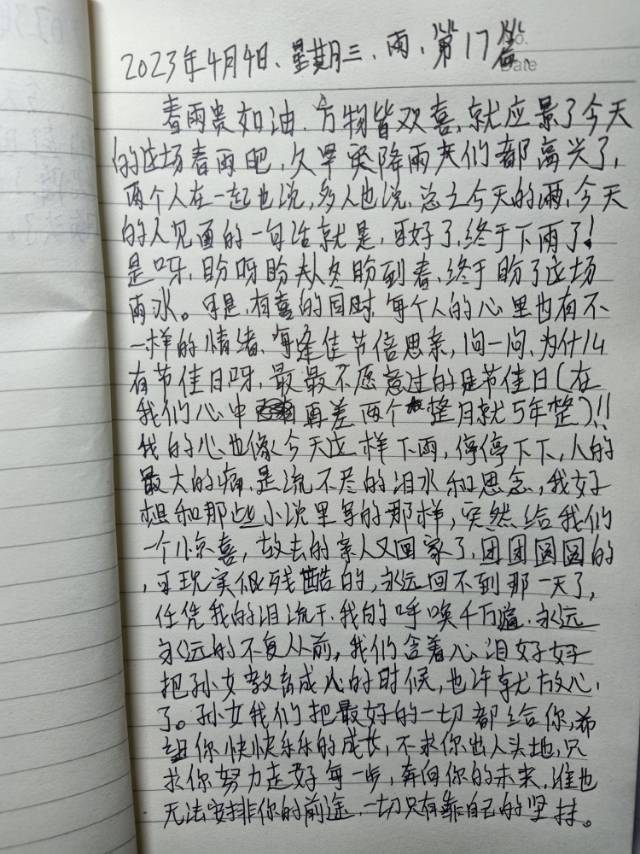 2023年4月4日、星期三、雨、第17篇、
No.
Date
春雨贵如油、万物皆欢喜、就应景了今天
的这场春雨吧,久旱突降雨人们都高兴了,
两个人在一起也说,多人也说、总之今天的雨、今天
的人见面的一句话就是,可好了、终于下雨了!
是呀,盼呀盼从冬盼到春,终于盼了这场
雨水。可是,有喜的同时,每个人的心里也有不
一样的情绪、每逢佳节倍思亲,问一问,为什么
有节佳日呀,最最不愿意过的是节佳日(在
我们心中再差两个整月就5年整)!!
我的心也像今天这样下雨,停停下下,人的
最大的痛,是流不尽的泪水和思念,我好
想和那些小说里写的那样,突然给我们
一个惊喜,故去的亲人又回家了,团团圆圆的
,可现实很残酷的,永远回不到那一天了,
任凭我的泪流干、我的呼唤千万遍、永远
永远的不复从前,我们含着心泪好好
把孙女教育成人的时候,也许就放心
了。孙女我们把最好的一切都给你,希
望你快快乐乐的成长,不求你出人头地,只
求你努力走好每一步,奔向你的未来、谁也
无法安排你的前途、一切只有靠自己的坚持。